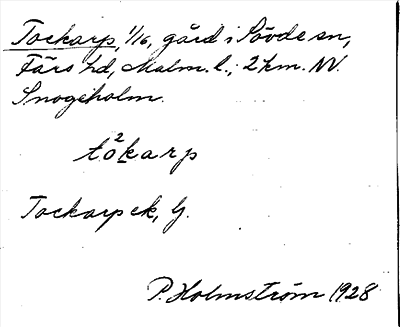 Tockarp, 1/16, gård i Sövde sn,
Färs hd, Malm. l.; 2 km. NV.
Snogeholm.
tò²karp
Tockarp ek, G.
P. Holmström 1928